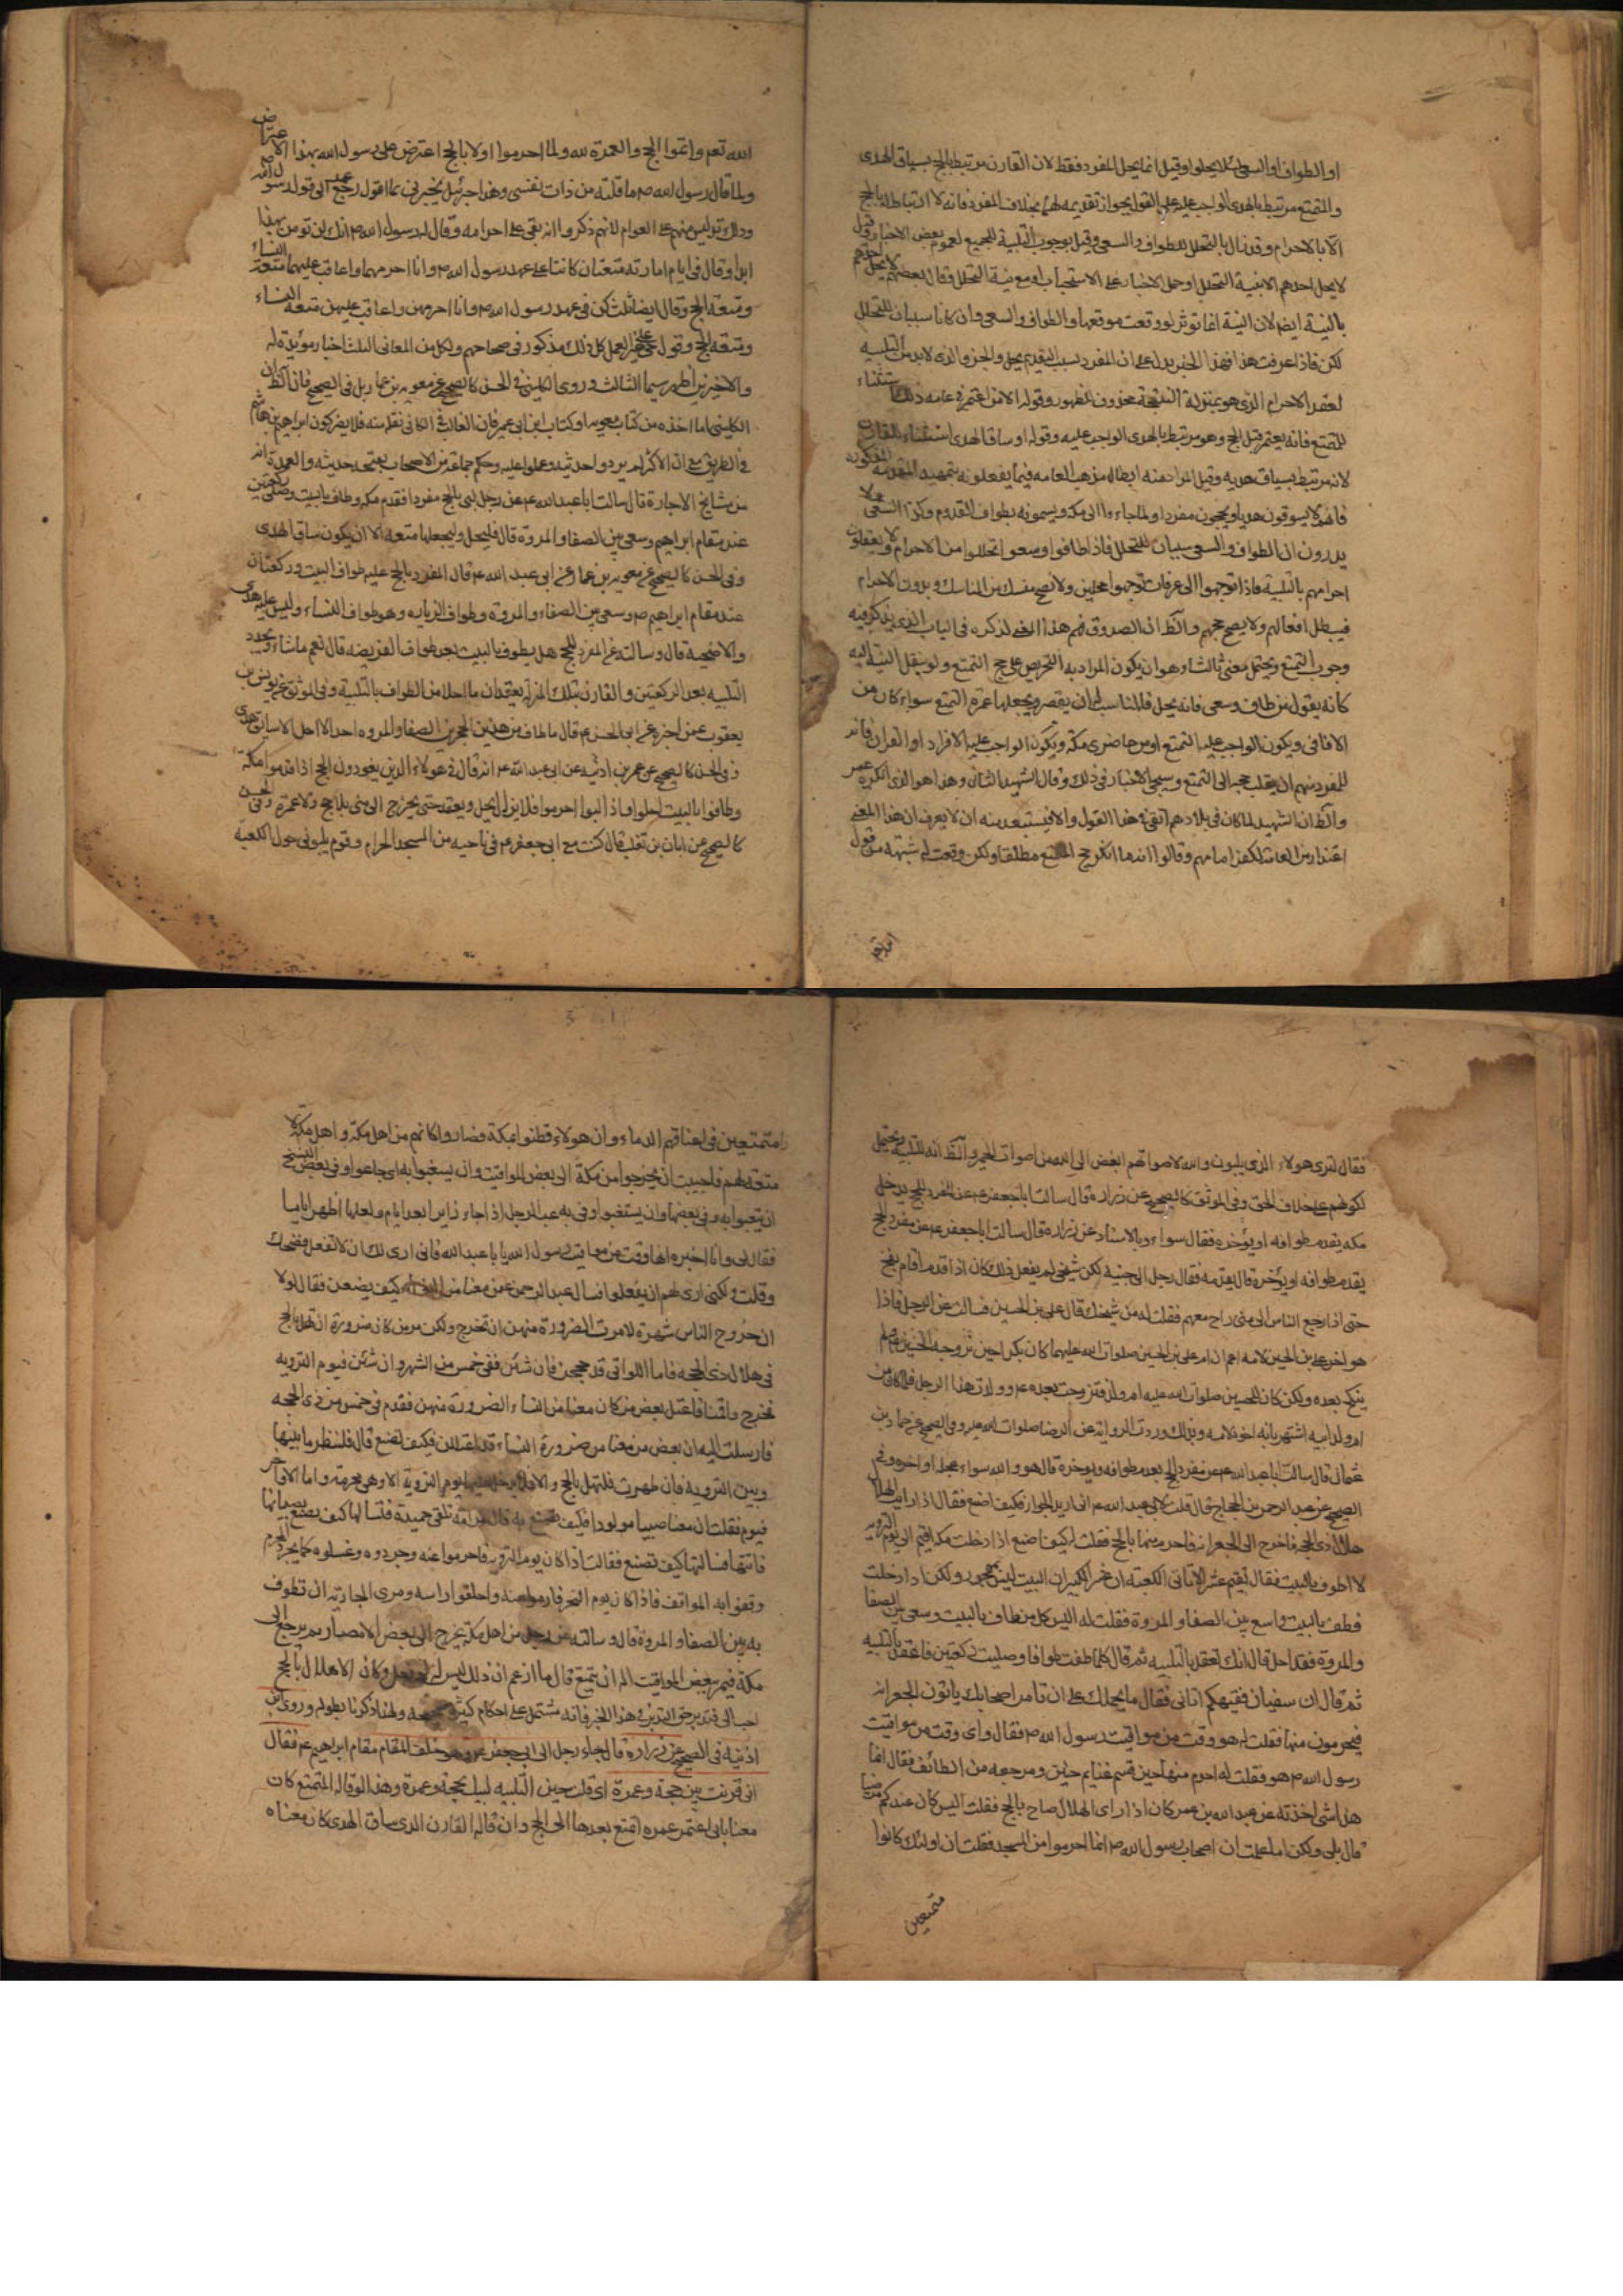 او الطواف او السعی لئلا یحلوا وقیل انما یحل المفرد فقط لان القارن مرتبط بالحج بسیاق الهدی
والمتمتع مرتبط بالهدی الواجب علیه علی القول بجواز تقدیمه لهما بخلاف المفرد فانه لا ارتباط له بالحج
الا بالاحرام وقد نال بالتحلل للطواف والسعی وقیل بوجوب التلبیة للجمیع لعموم بعض الاخبار وقیل
لا یحل احدهم الا بنیة التحلل او حمل الاخبار علی الاستحباب او مع نیة التحلل وقال بعضهم لا یحل احدهم
بالنیة ایضا لان النیة انما توثر لو وقعت موقعها والطواف والسعی وان کانا سببان للتحلل
لکن فاذا عرفت هذا فهذا الخبر یدل علی ان المفرد بسبب التقدیم یحل والجزو الذی لابد من التلبیه
لعقد الاحرام الذی هو بمنزلة النتیجة محذوف للظهور وقوله الا من اعتمر فی عامه ذلک استثناء
للمتمتع فانه یعتمر قبل الحج وهو مرتبط بالهدی الواجب علیه وقوله او ساق الهدی استثناء للقارن
لانه مرتبط بسیاق هدیه وقیل المراد منه ابطال مذهب العامه فیما یفعلونه بتمهید المقدمه المذکوره
فانهم لا یسوقون هدیا ویحجون مفردا ولما جاءوا الی مکه ویسمونه بطواف القدوم وکذا السعی ولا
یدرون ان الطواف والسعی سببان للتحلل فاذا طافوا وسعوا تحللوا من الاحرام ولا یعقدون
احرامهم بالتلبیة فاذا توجهوا الی عرفات توجهوا محلین ولا یصح نسک من المناسک بدون الاحرام
فیبطل افعالهم ولا یصح حجهم والظ ان الصدوق فهم هذا المعنی لذکره فی الباب الذی یذکر فیه
وجوب التمتع ویحتمل معنی ثالثا وهو ان یکون المراد به التحریص علی حج التمتع ولو بنقل النیة الیه
کانه یقول من طاف وسعی فانه یحل فالمناسب له ان یقصر ویجعلها عمرة التمتع سواء کان من
الافاقی ویکون الواجب علیه التمتع او من حاضری مکة ویکون الواجب علیه الافراد او القران فانه
للمفرد منهم ان یقلب حجه الی التمتع وسیجی الاخبار فی ذلک وقال الشهید الثانی وهذا هو الذی انکره عمر
والظ ان الشهید لما کان فی بلادهم اتقی فی هذا القول والا فیستبعد منه ان لا یعرف ان هذا المعنی
اعتذار من العامه لکفر امامهم وقالوا انه ما انکر حج التمتع مطلقا ولکن وقعت له شبهة من قول
الله تع
الله تعم واتموا الحج والعمرة لله ولما احرموا اولا بالحج اعترض علی رسول الله بهذا الاعتراض
ولما قال رسول الله ص ما قلته من ذات نفسی وهذا جبرئیل یخبرنی بما اقول رجع عمر الی قول رسول الله ص
وذلک تدلیس منهم علی العوام لانهم ذکروا انه بقی علی احرامه وقال له رسول الله ص انک لن تومن بهذا
ابدا وقال فی ایام امارته متعتان کانتا علی عهد رسول الله ص وانا احرمهما واعاقب علیهما متعة النساء
ومتعة الحج وقال ایضا ثلث کن فی عهد رسول الله ص وانا احرمهن واعاقب علیهن متعة النساء
ومتعة الحج وقول حی علی خیر العمل کل ذلک مذکور فی صحاحهم ولکل من المعانی الثلث اخبار مؤیدة له
والاخیر اظهر سیما الثالث وروی الکلینی فی الحسن کالصحیح عن معویه بن عمار بل فی الصحیح فان الظ ان
الکلینی اما اخذه من کتاب معویه او کتاب ابن ابی عمیر فان الغالب فی الکافی نقله منه فلا یضر کون ابراهیم بن هاشم
فی الطریق مع ان الاکثر لم یردوا حدیثه وعملوا علیه وحکم جماعة من الاصحاب بصحة حدیثه والعمدة انه
من مشایخ الاجازة قال سالت ابا عبد الله ع عن رجل لبی بالحج مفردا فقدم مکة وطاف بالبیت وصلی رکعتین
عند مقام ابراهیم وسعی بین الصفا والمروة قال فلیحل ولیجعلها متعة الا ان یکون ساق الهدی
وفی الحسن کالصحیح عن معویه بن عمار عن ابی عبد الله ع قال المفرد بالحج علیه طواف البیت ورکعتان
عند مقام ابراهیم ص وسعی بین الصفاء والمروة وطواف الزیاره وهو طواف النساء ولیس علیه هدی
والاضحیة قال وسالته عن المفرد للحج هل یطوف بالبیت بعد طواف الفریضه قال نعم ماشاء ویجدد
التلبیه بعد الرکعتین والقارن بتلک المنزلة یعقدان ما احلا من الطواف بالتلبیة وفی الموثق عن یونس بن
یعقوب عمن اخبره عن ابی الحسن ع قال ما طاف بین هذین الحجرین الصفا والمروه احد الا احل الا سائق هدی
وفی الحسن کالصحیح عن عمر بن اذینه عن ابی عبد الله ع انه قال فی هولاء الذین یفردون الحج اذا قدموا مکة
وطافوا بالبیت احلوا فاذا لبوا احرموا فلا یزال یحل ویعقد حتی یخرج الی منی بلا حج ولا عمرة وفی الحسن
کالصحیح عن ابان بن تغلب قال کنت مع ابی جعفر ع فی ناحیه من المسجد الحرام وقوم یلبون حول الکعبة
فقال اتری هولاء الذی یلبون والله لاصواتهم ابغض الی الله من اصوات الحمیر والظ انه للتلبیة ویحتمل
لکونهم علی خلاف الحق وفی الموثق کالصحیح عن زراره قال سالت ابا جعفر ع عن المفرد للحج یدخل
مکه یقدم طوافه او یؤخره فقال سواء وبالاسناد عن زراره قال سالت ابا جعفر ع عن مفرد الحج
یقدم طوافه او یؤخره قال یقدمه فقال رجل الی جنبه لکن شیخی لم یفعل ذلک کان اذا قدم اقام بفخ
حتی اذا رجع الناس الی منی راح معهم فقلت له من شیخک قال علی بن الحسین فسالت عن الرجل فاذا
هو اخو علی بن الحسین لامه
ینکح بعده ولکن کان للحسین صلوات الله علیه ام ولد فتزوجت بعده ع وولدت هذا الرجل
ام ولد ابیه اشتهر بانه اخوه لامه وبذلک وردت الروایة عن الرضا صلوات الله علیه وفی الصحیح عن حماد بن
عثمان قال سالت ابا عبد الله ع عن مفرد الحج یعجل طوافه او یوخره قال هو والله سواء عجله او اخره وفی
الصحیح عن عبد الرحمن بن الحجاج قال قلت لابی عبد الله ع انی ارید الجوار فکیف اصنع فقال اذا رایت الهلال
هلال ذی الحجه فاخرج الی الجعرانه فاحرم منها بالحج فقلت له کیف اصنع اذا دخلت مکه اقیم الی یوم الترویه
لا اطوف بالبیت فقال تقیم عشرا لا تاتی الکعبه ان عشرا لکثیر ان البیت لیس بمهجور ولکن اذا دخلت
فطف بالبیت واسع بین الصفا والمروة فقلت له الیس کل من طاف بالبیت وسعی بین الصفا
والمروة فقد احل قال انک تعقد بالتلبیه ثم قال کلما طفت طوافا وصلیت رکعتین فاعقد بالتلبیه
ثم قال ان سفیان فقیهکم اتانی فقال ما یحملک علی ان تامر اصحابک یاتون الجعرانه
فیحرمون منها فقلت له هو وقت من مواقیت رسول الله ص فقال وای وقت من مواقیت
رسول الله ص هو فقلت له احرم منها حین قسم غنایم حنین ومرجعه من الطائف فقال انما
هذا شئ اخذته عن عبد الله بن عمر کان اذا رای الهلال صاح بالحج فقلت الیس کان عندکم مرضیا
قال بلی ولکن اما علمت ان اصحاب رسول الله ص انما احرموا من المسجد فقلت ان اولئک کانوا
متمتعین
متمتعین فی اعناقهم الدماء وان هولاء قطنوا بمکة فصاروا کانهم من اهل مکة واهل مکة لا
متعة لهم فاحببت ان یخرجوا من مکة الی بعض المواقیت وان یسغبوا به ای جاعوا وفی بعض النسخ
فقال لی وانا اخبره انها وقت من مواقیت رسول الله یا ابا عبد الله فانی اری لک ان لا تفعل فضحکت
وقلت ولکنی اری لهم ان یفعلوا فسال عبد الرحمن عمن معنا من النساء کیف یصنعن فقال لولا
ان خروج الناس شهرة لامرت الضرورة منهن ان تخرج ولکن مر من کان ضرورة ان تهل بالحج
فی هلال ذی الحجه فاما اللواتی قد حججن فان شئن ففی خمس من الشهر وان شئن فیوم الترویه
فخرج واقمنا فاعتل بعض من کان معنا من النساء الضرورة منهن فقدم فی خمس من ذی الحجه
فارسلت الیه ان بعض من معنا من ضرورة النساء قد اعتللن فکیف تصنع قال فلتنظر ما بینها
وبین الترویه فان طهرت فلتهل بالحج والا فلا یدخل علیها یوم الترویة الا وهی محرمة واما الاواخر
فیوم فقلت ان معنا صبیا مولودا فکیف نصنع به قال مر امه تلقی حمیدة فتسالها کیف تصنع بصبیانها
فاتتها فسالتها کیف تصنع فقالت اذا کان یوم الترویه فاحرموا عنه وجردوه وغسلوه کما یجرد المحرم
وقفوا به المواقف فاذا کان یوم النحر فارموا عنه واحلقوا راسه ومری الجاریة ان تطوف
به بین الصفا والمروة قال وسالته عن رجل من اهل مکة یخرج الی بعض الامصار ثم یرجع الی
مکة فیمر ببعض المواقیت اله ان یتمتع قال ما ازعم ان ذلک لیس له لو فعل وکان الاهلال بالحج
احب الی فتدبر حق التدبر فی هذا الخبر فانه مشتمل علی احکام کثیرة صحیحه ولهذا ذکرنا بطوله وروی ابن
اذینه فی الصحیح عن زراره قال جاء رجل الی ابی جعفر ع وهو خلف المقام مقام ابراهیم ع فقال
انی قرنت بین حجة وعمرة ای قلت حین التلبیه لبیک بحجة وعمرة وهذا لو قاله المتمتع کان
معناه انی اعتمر عمره اتمتع بعدها الی الحج وان قاله القارن الذی ساق الهدی کان معناه